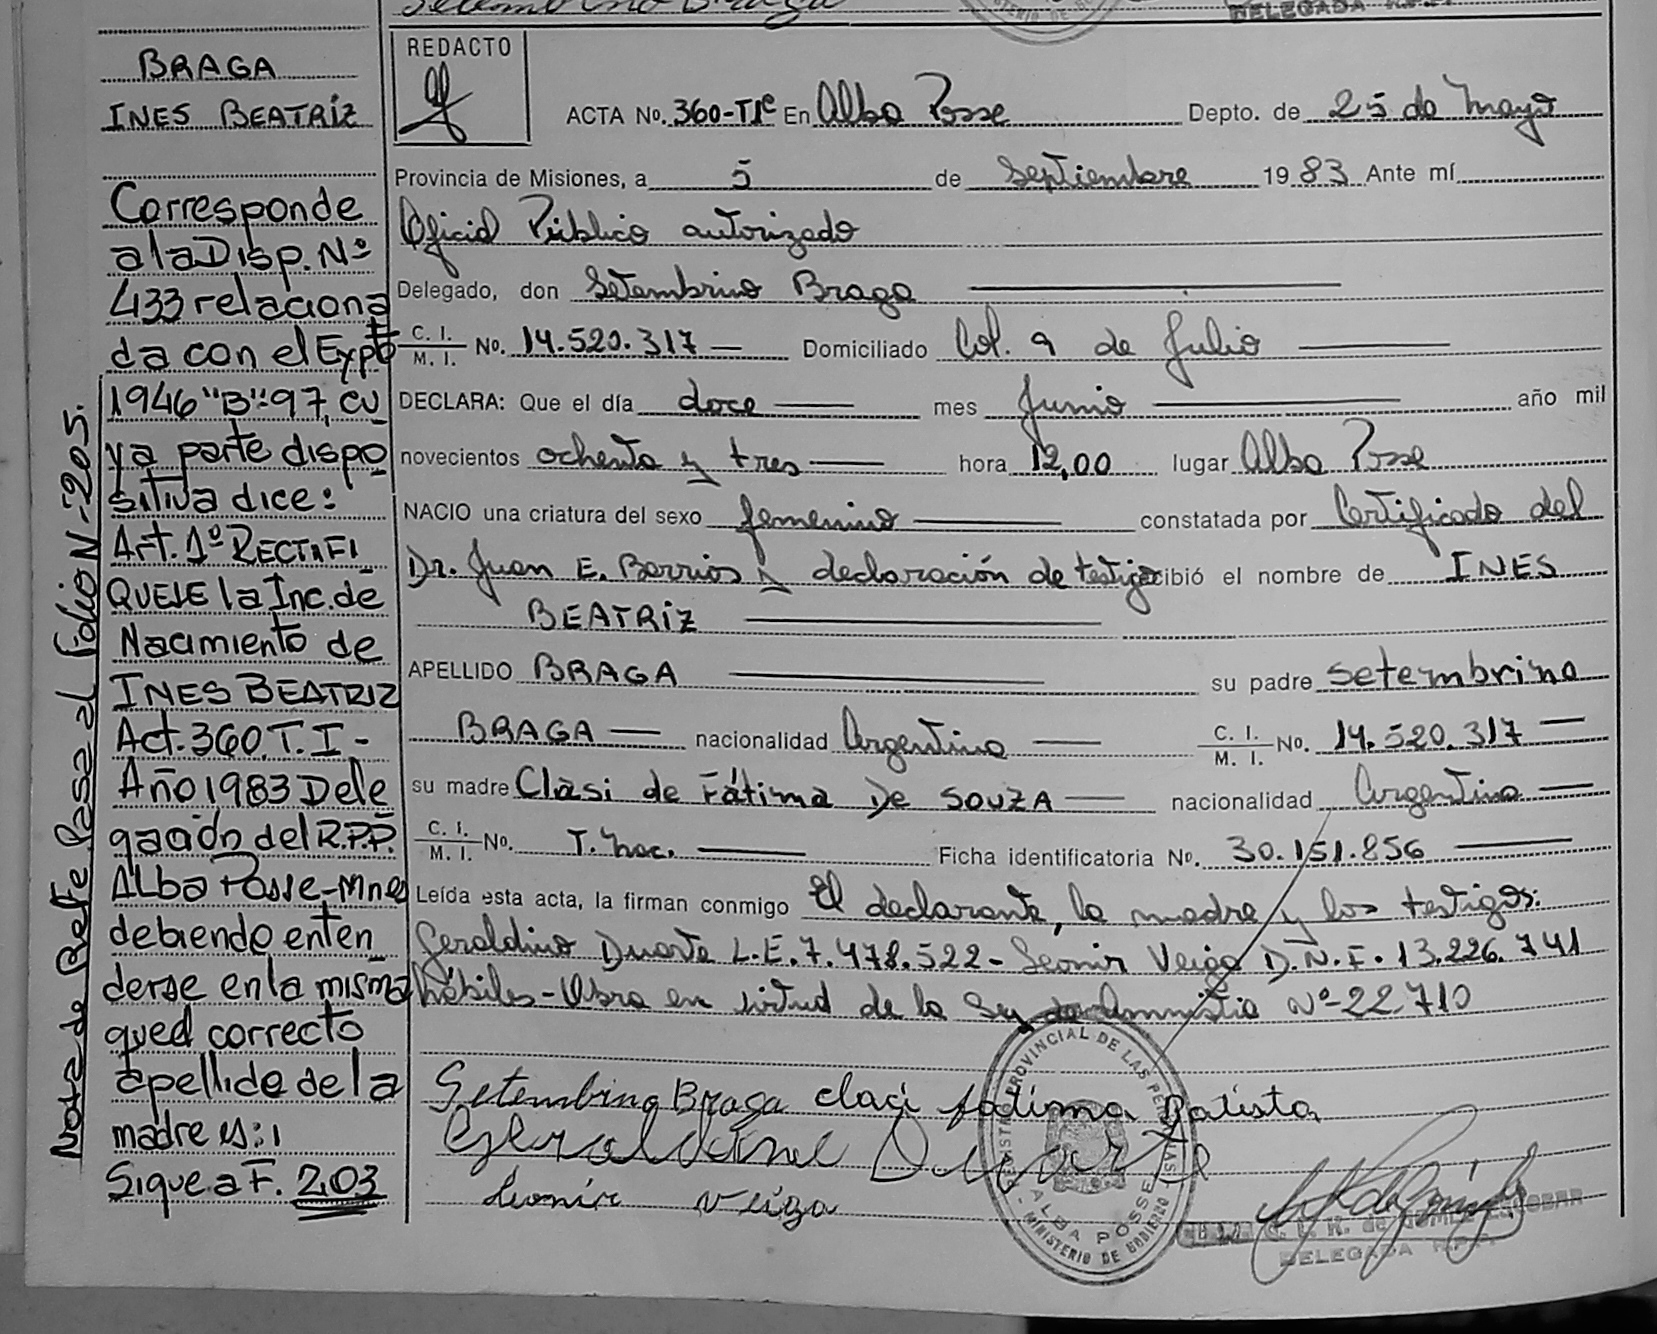 Setembrino Braga
DELEGADA R.P.P.
BRAGA
INES BEATRIZ
Corresponde
a la Disp. Nº
433 relaciona
da con el Expte
1946 "B"-97, cu
ya parte dispo
sitiva dice:
Art. 1º RECTIFI
QUESE la Inc. de
Nacimiento de
INES BEATRIZ
Act. 360. T. I -
Año 1983 Dele
gación del R.P.P.
Alba Posse-Mnes
debiendo enten
derse en la misma
qued correcto
apellido de la
madre es:
Sigue a F. 203
Nota de Refte Pasa al Folio Nº 205.
REDACTO
ACTA No. 360-TIº En Alba Posse Depto. de 25 de Mayo
Provincia de Misiones, a 5 de Septiembre 19 83 Ante mí
Oficial Público autorizado
Delegado, don Setembrino Braga
C. I. / M. I. No. 14.520.317 — Domiciliado Col. 9 de Julio
DECLARA: Que el día doce — mes Junio — año mil
novecientos ochenta y tres — hora 12,00 lugar Alba Posse
NACIO una criatura del sexo femenino — constatada por Certificado del
Dr. Juan E. Barrios y declaración de testigos recibió el nombre de INES
BEATRIZ —
APELLIDO BRAGA — su padre setembrino
BRAGA — nacionalidad Argentina — C. I. / M. I. No. 14.520.317 —
su madre Clasi de Fátima De SOUZA — nacionalidad Argentina —
C. I. / M. I. No. T. nac. — Ficha identificatoria No. 30.151.856 —
Leída esta acta, la firman conmigo El declarante, la madre y los testigos:
Geraldino Duarte L.E. 7.478.522 - Leonir Veiga D.N.I. 13.226.741
hábiles - Obra en virtud de la Ley de Amnistia Nº 22.710
Setembrino Braga claci fatima Batista
Geraldine Duarte
Leonir Veiga
PROVINCIAL DE LAS PERSONAS
ALBA POSSE
MINISTERIO DE GOBIERNO
DELEGADA R.P.P.